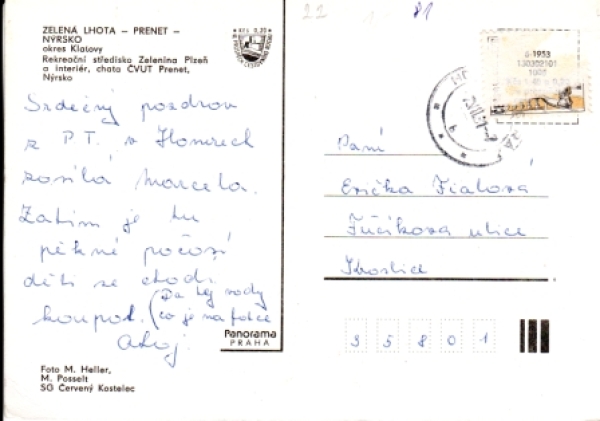 ZELENÁ LHOTA – PRENET –
NÝRSKO
okres Klatovy
Rekreační středisko Zelenina Plzeň
a interiér, chata ČVUT Prenet,
Nýrsko
Kčs 0,20
22 1 81
6-1953
130302101
1005
Srdečný pozdrav
z P.T. v
zasílá Marcela.
Zatím je tu
pěkné počasí
děti se chodí
koupat. (Do tej vody
co je na fotce
ahoj.
Panorama
PRAHA
Foto M. Heller,
M. Posselt
SG Červený Kostelec
Paní
Erička Fialová
Fučíkova ulice
35801